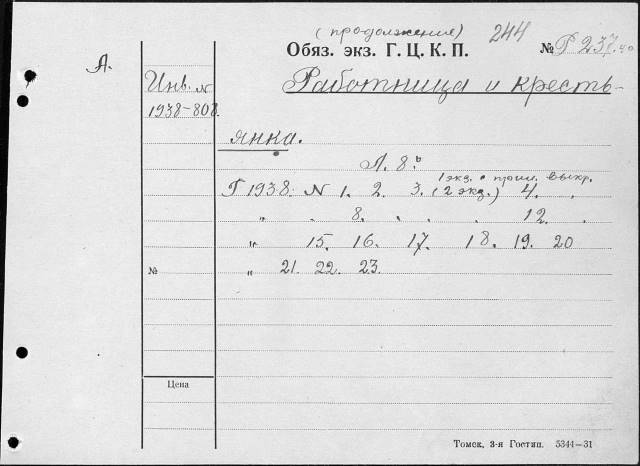 (продолжение)
244
Обяз. экз. Г. Ц. К. П.
№ Р 237.40
А.
Инв. N
1938-808.
Работница и кресть-
янка.
Л. 8.º
1 экз. с прил. выкр.
Г 1938. N 1. 2. 3. (2 экз.) 4. .
„ . 8. . . 12. .
„ 15. 16. 17. 18. 19. 20
№ „ 21. 22. 23.
Цена
Томск, 3-я Гостип. 5344—31